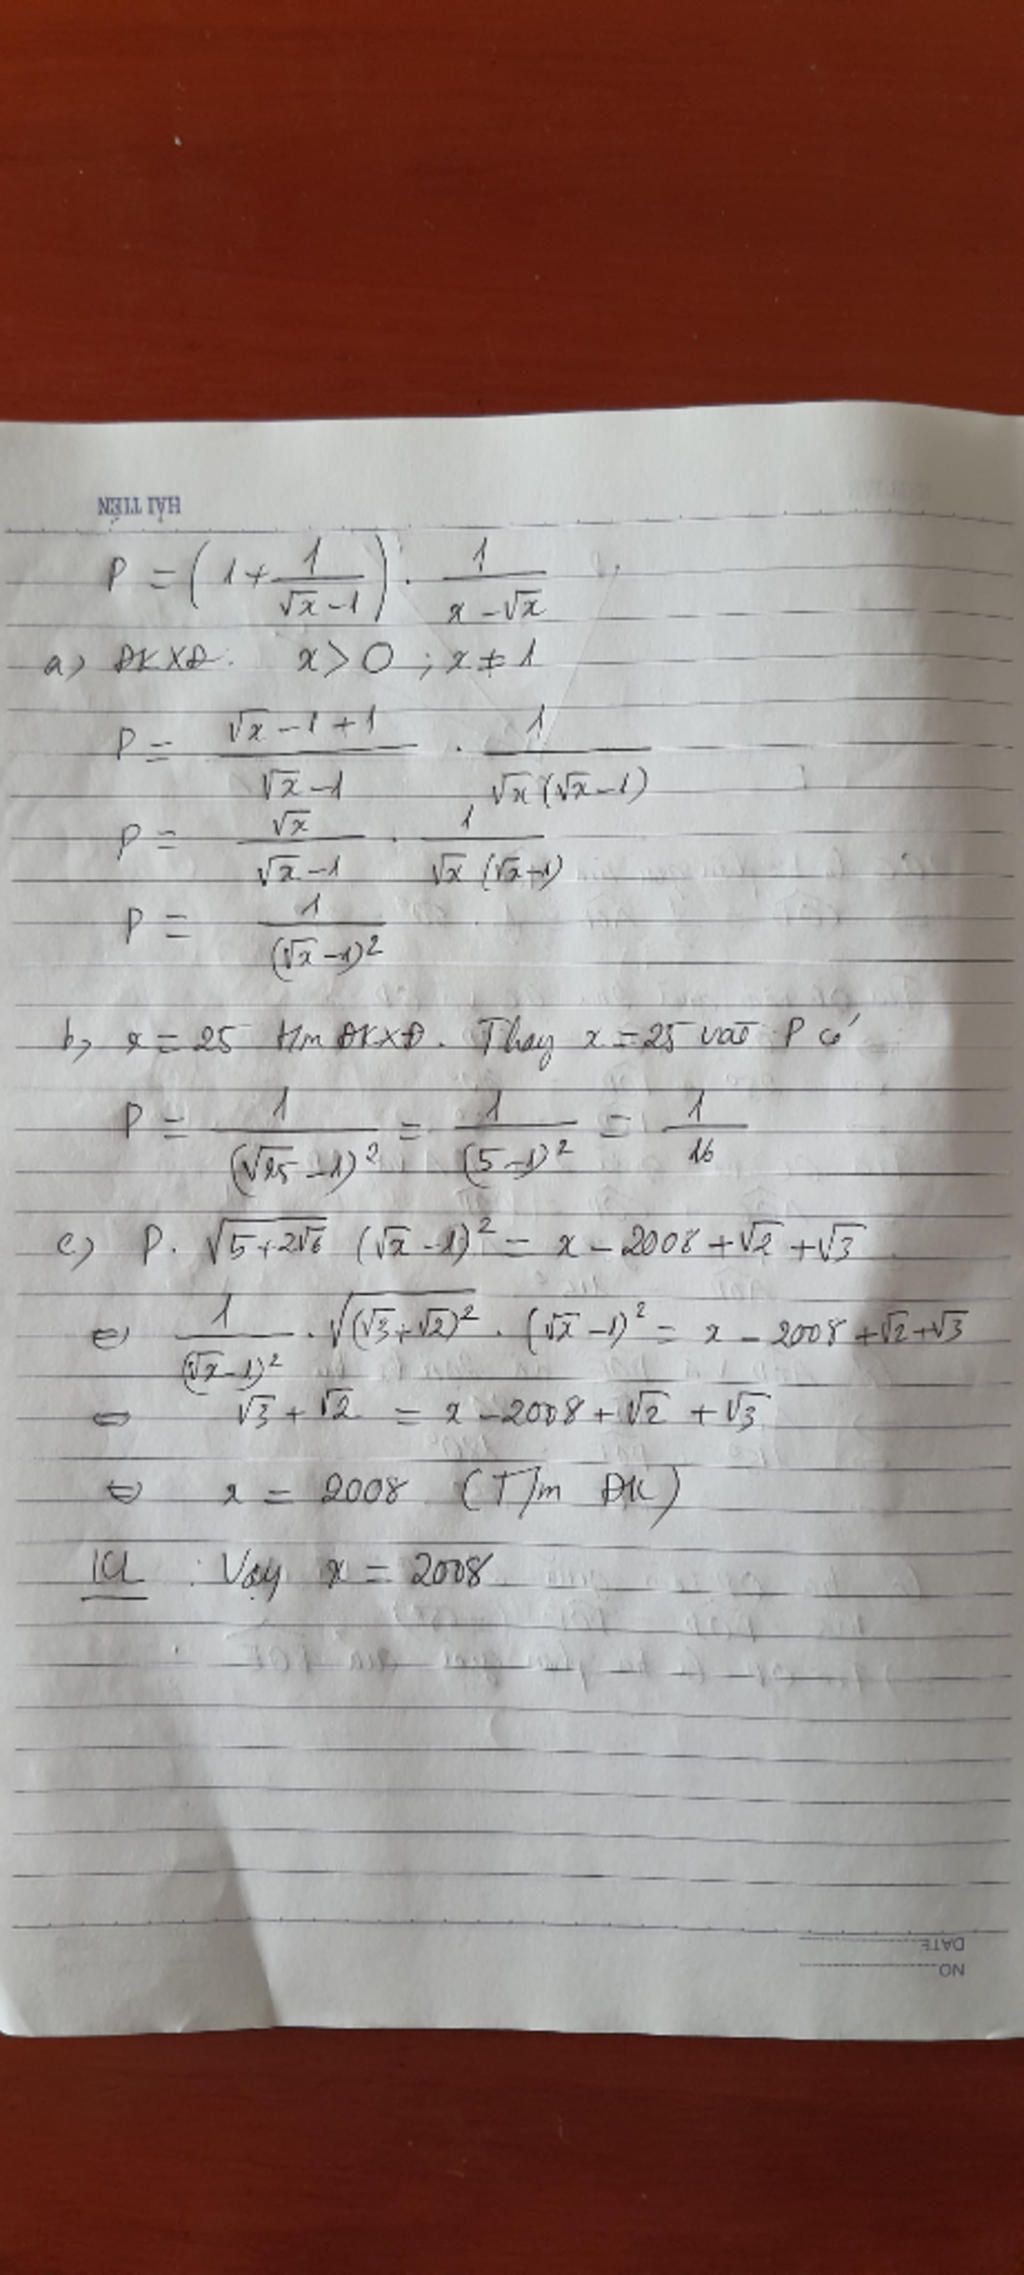 HẢI TIẾN
P = (1 + 1/(√x - 1)) . 1/(x - √x)
a) ĐKXĐ: x > 0 ; x ≠ 1
P = (√x - 1 + 1)/(√x - 1) . 1/(√x (√x - 1))
P = √x/(√x - 1) . 1/(√x (√x - 1))
P = 1/(√x - 1)²
b) x = 25 t/m ĐKXĐ. Thay x = 25 vào P có
P = 1/(√25 - 1)² = 1/(5 - 1)² = 1/16
c) P. √(5 + 2√6) (√x - 1)² = x - 2008 + √2 + √3
⇔ 1/(√x - 1)² . √((√3 + √2)²) . (√x - 1)² = x - 2008 + √2 + √3
⇔ √3 + √2 = x - 2008 + √2 + √3
⇔ x = 2008 (T/m ĐK)
KL : Vậy x = 2008
DATE
NO